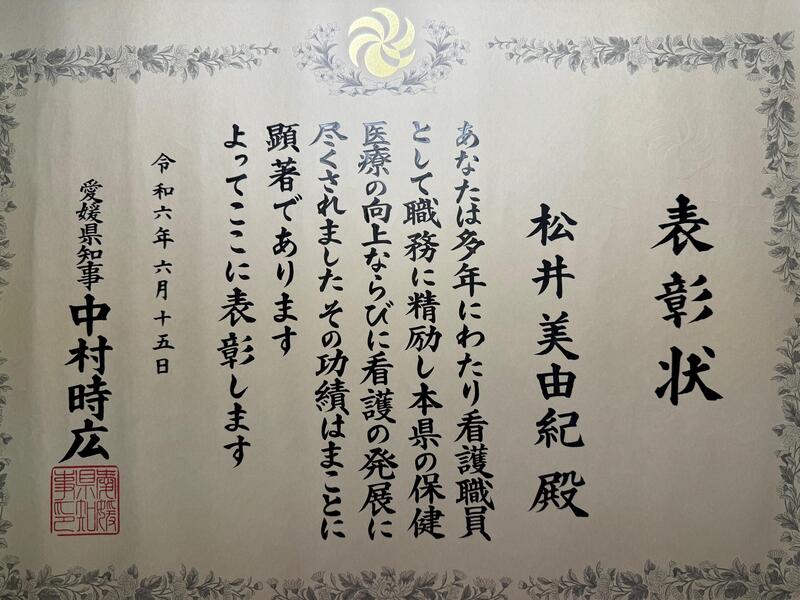 表彰状
松井美由紀 殿
あなたは多年にわたり看護職員
として職務に精励し本県の保健
医療の向上ならびに看護の発展に
尽くされました その功績はまことに
顕著であります
よってここに表彰します
令和六年六月十五日
愛媛県知事 中村時広
愛媛県知事印